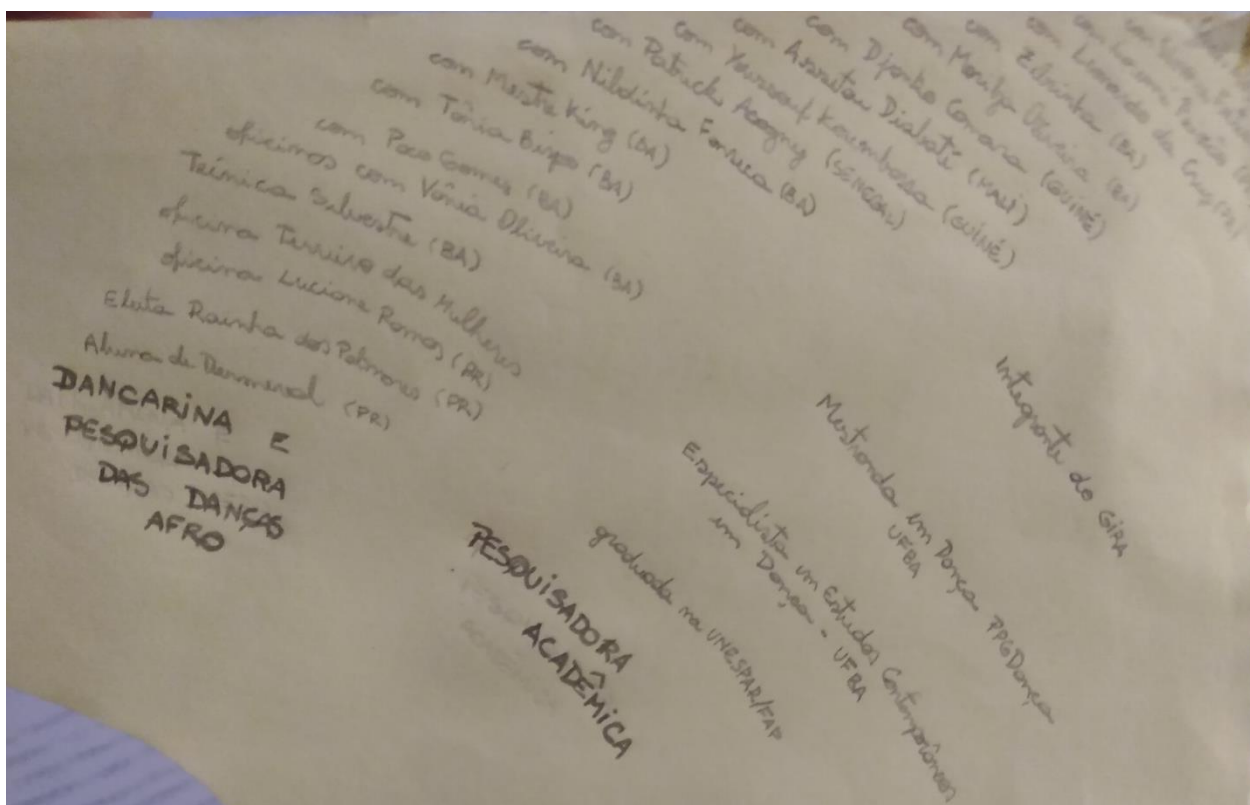 com Leonardo da Cruz (PR)
com Edeinha (BA)
com Marilza Oliveira (BA)
com Djanko Camara (GUINÉ)
com Assaitou Diabaté (MALI)
com Youssouf Koumbassa (GUINÉ)
com Patrick Acogny (SENEGAL)
com Nildinha Fonseca (BA)
com Mestre King (BA)
com Tânia Bispo (BA)
com Paco Gomes (BA)
oficinas com Vânia Oliveira (BA)
Técnica Silvestre (BA)
oficina Terreiro das Mulheres
oficina Luciane Ramos (PR)
Eleita Rainha dos Palmares (PR)
Aluna de Dermeval (PR)
DANCARINA E
PESQUISADORA
DAS DANÇAS
AFRO
Integrante do GIRA
Mestranda em Dança PPGDança
UFBA
Especialista em Estudos Contemporâneos
em Dança - UFBA
graduada na UNESPAR/FAP
PESQUISADORA
ACADÊMICA